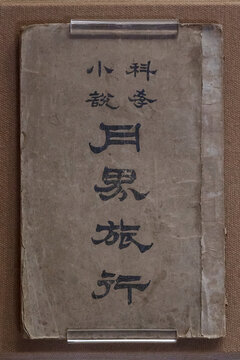 科學
小說
月界旅行